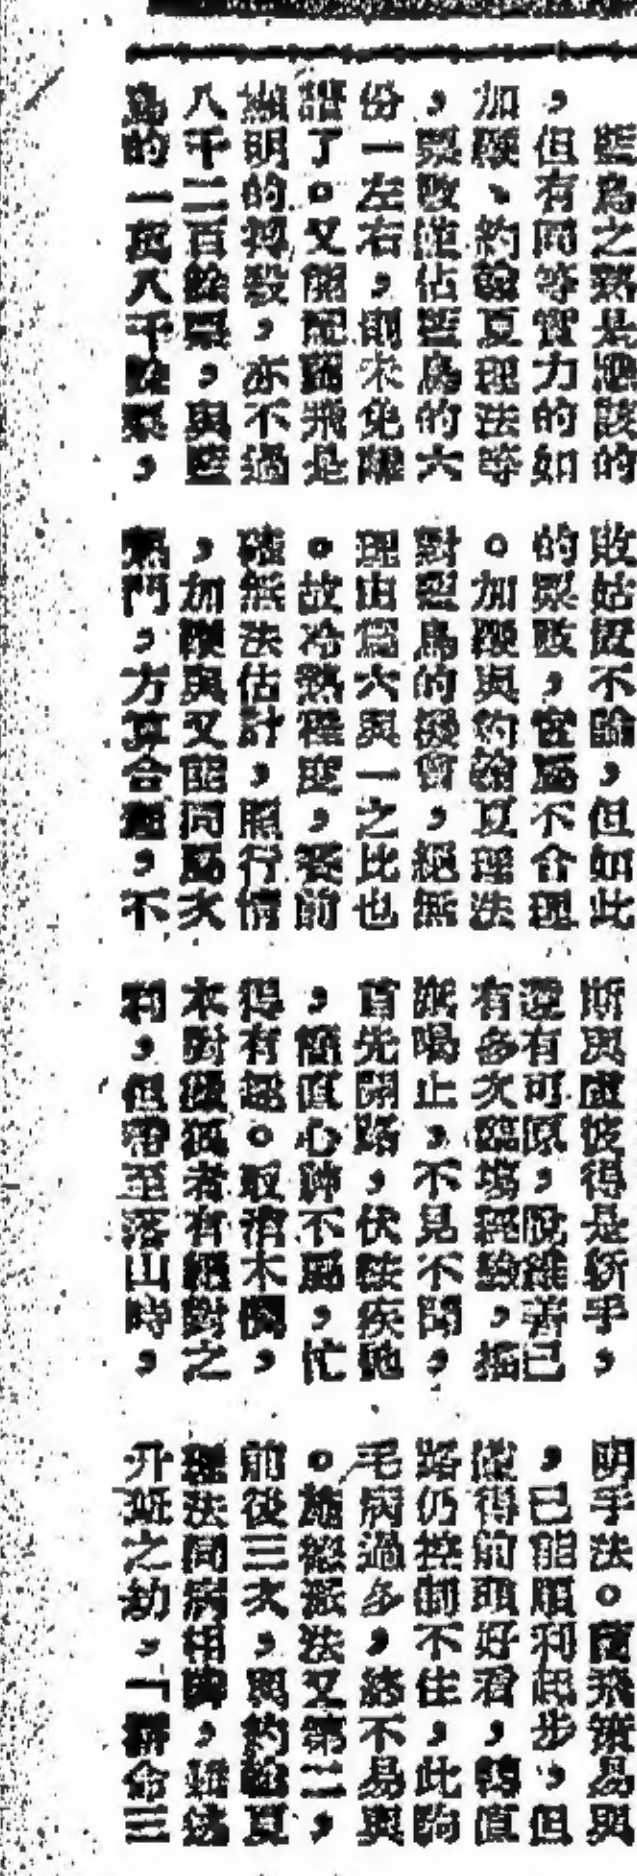 藍鳥之熱是應該的
，但有同等實力的如
加陵、約翰夏理法等
，票數僅佔藍鳥的六
份一左右，則未免離
譜了。又能配藍飛是
顯明的搏殺，亦不過
八千二百餘票，與藍
鳥的一萬八千餘票，
敗姑置不論，但如此
的票數，實屬不合理
。加陵與約翰夏理法
對藍鳥的機會，絕無
理由爲六與一之比也
。故冷熱程度，賽前
確無法估計，照行情
，加陵與又能同爲次
熱門，方算合理，不
斯與盧彼得是新手，
還有可原，脫維善已
有多次臨場經驗，揸
喝止，不見不聞，
首先開路，伏鞍疾馳
，簡直心神不屬，忙
得有趣。取消木積，
本對後者有絕對之
利，但帶至落山時，
明手法。薩飛積易與
，已能順利起步，但
僅得前頭好看，轉直
路仍控制不住，此駒
毛病過多，終不易與
。施德派法又第二，
前後三次，與約翰夏
理法同病相憐，
升班之劫，「拼命三